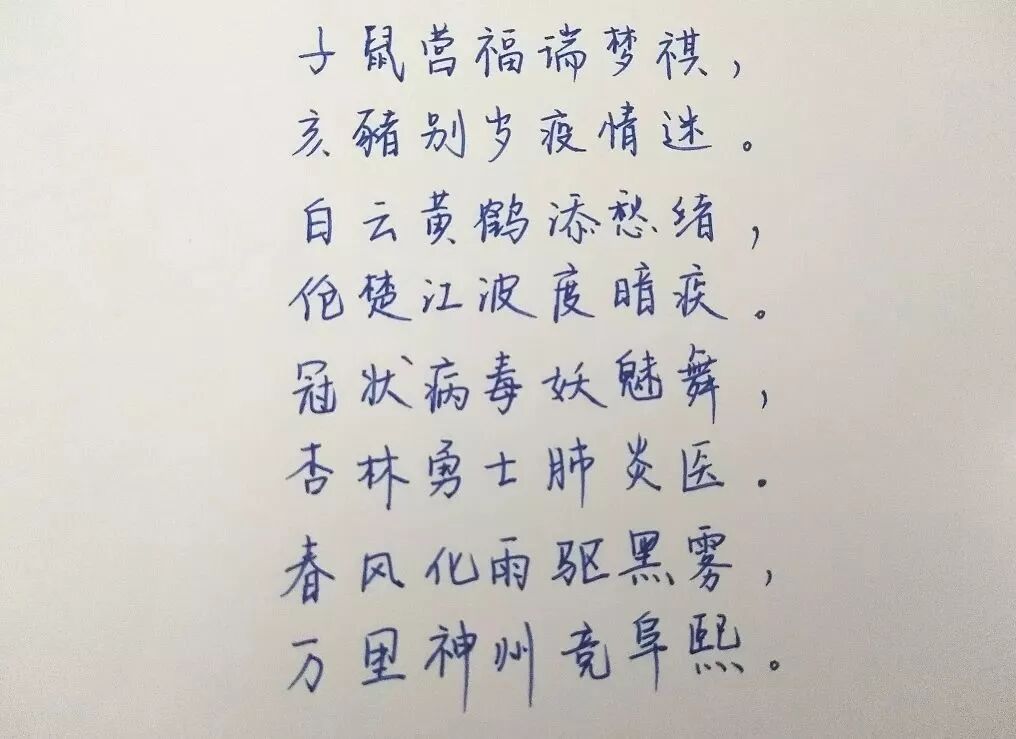 子鼠营福瑞梦祺，
亥豬别岁疫情迷。
白云黄鹤添愁绪，
伧楚江波度暗疾。
冠状病毒妖魅舞，
杏林勇士肺炎医.
春风化雨驱黑雾，
万里神州竞阜熙。